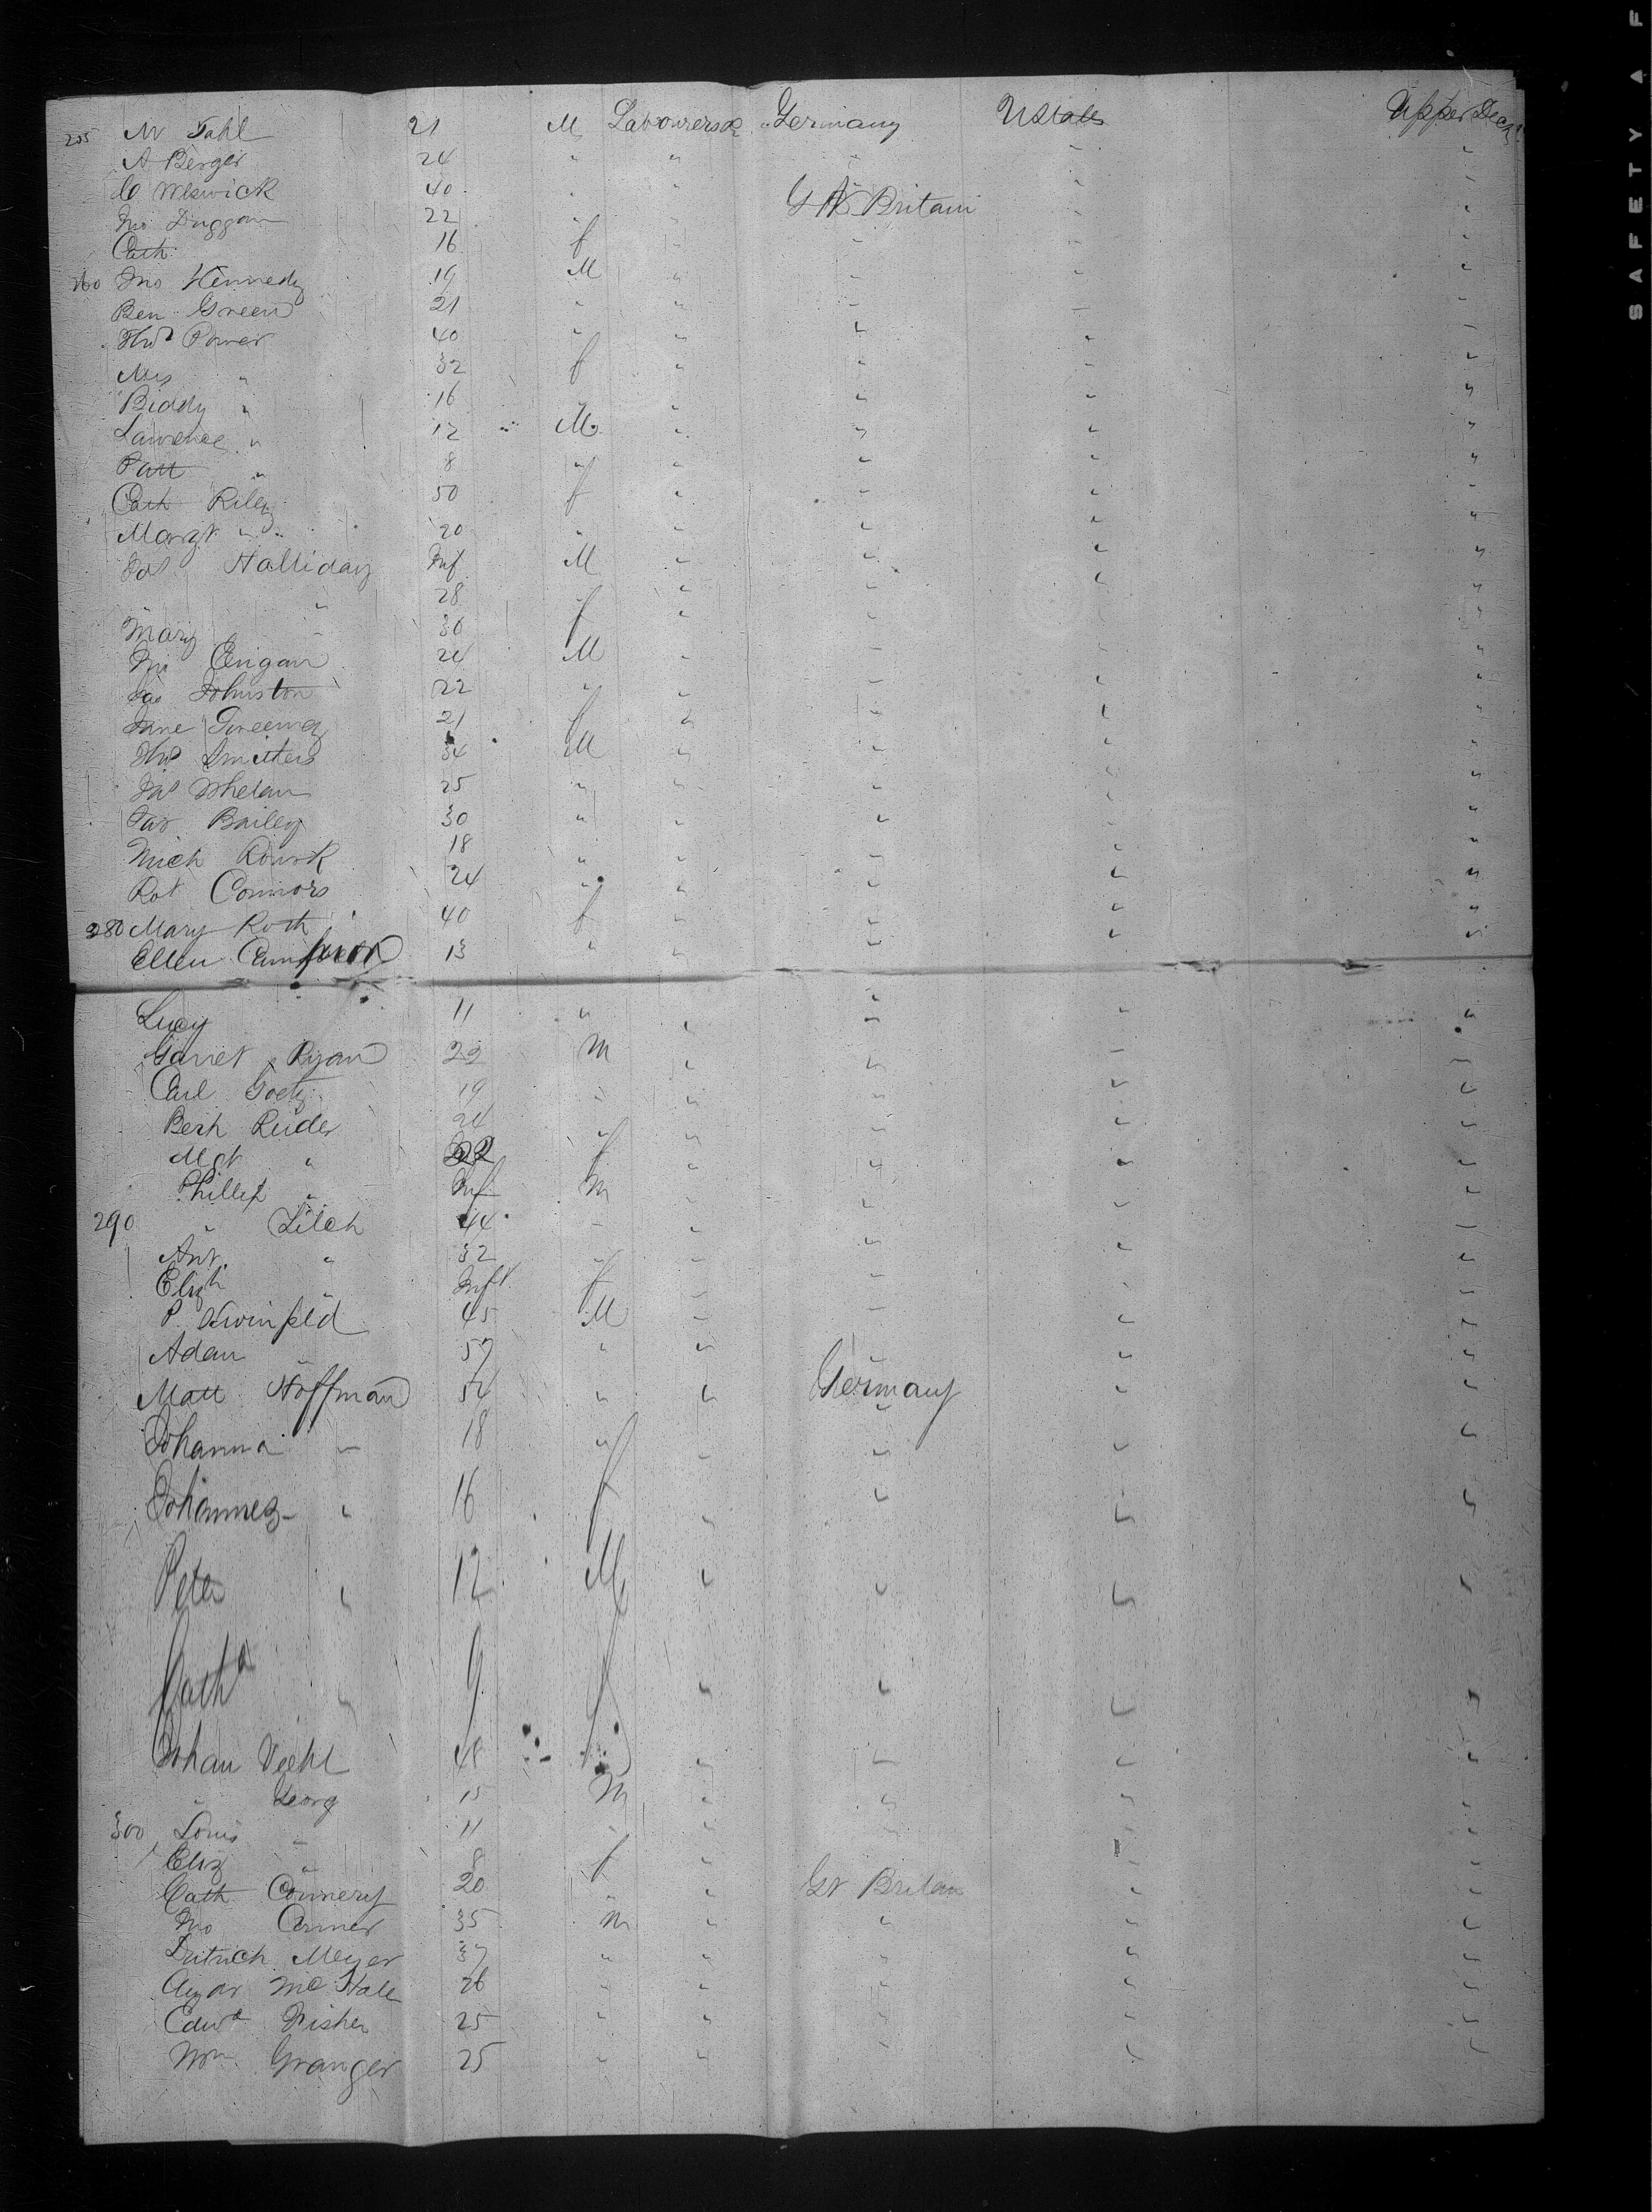 255 W Fahl 21 M Labourers &c Germany UStates Upper Deck
A Berger 24 " " " " "
C Weswick 40 " " " "
Jno Duggan 22 " " Gt Britain " "
Cath 16 f " " " "
260 Jno Kennedy 19 M " " " "
Ben Green 21 " " " " "
Thos Power 40 " " " " "
Mrs " 32 f " " " "
Biddy " 16 " " " " "
Lawrence " 12 M " " " "
Patt " 8 " " " " "
Cath Riley 50 f " " " "
Margt " 20 " " " " "
Jas Halliday Inf M " " " "
" " 28 " " " " "
Mary " 30 f " " " "
Jno 24 M " " " "
Jas Johnston 22 " " " " "
Jane Sweeney 21 f " " " "
Thos Smithers 34 M " " " "
Jas Whelan 25 " " " " "
Jas Bailey 30 " " " " "
Mich Rourk 18 " " " " "
Rot Connors 24 " " " " "
280 Mary Roth 40 f " " " "
Ellen Campbell 13 " " " " "
Lucy 11 " " " " "
Garret Ryan 22 M " " " "
Carl Goetz 19 " " " " "
Beth Ruder 24 " " " " "
Mgt " 22 f " " " "
Phillip " Inf M " " " "
290 " Lilch 44 " " " " "
Ant " 32 " " " " "
Elizh " Inft f " " " "
P. 45 M " " " "
Adam " 57 " " " " "
Matt Hoffman 54 " " Germany " "
Johanna " 18 " " " " "
Johannes " 16 f " " " "
Peter " 12 M " " " "
Catha " 9 f " " " "
Johan Veehl 48 " " " "
" Georg 15 M " " " "
300 Louis " 11 " " " " "
Eliz " 8 f " " " "
Cath Connery 20 " " Gt Britain " "
Jno Carmer 35 M " " " "
Ditrich Meyer 37 " " " " "
McHale 26 " " " " "
Edwd Fisher 25 " " " " "
Wm Granger 25 " " " " "
SAFETY AF